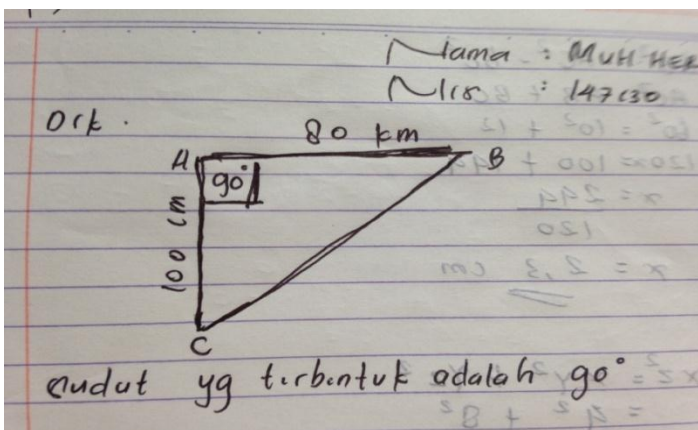 Nama : MUH HER
NIS : 147030
Dik .
80 km
A
B
90°
100 cm
C
sudut yg terbentuk adalah 90°